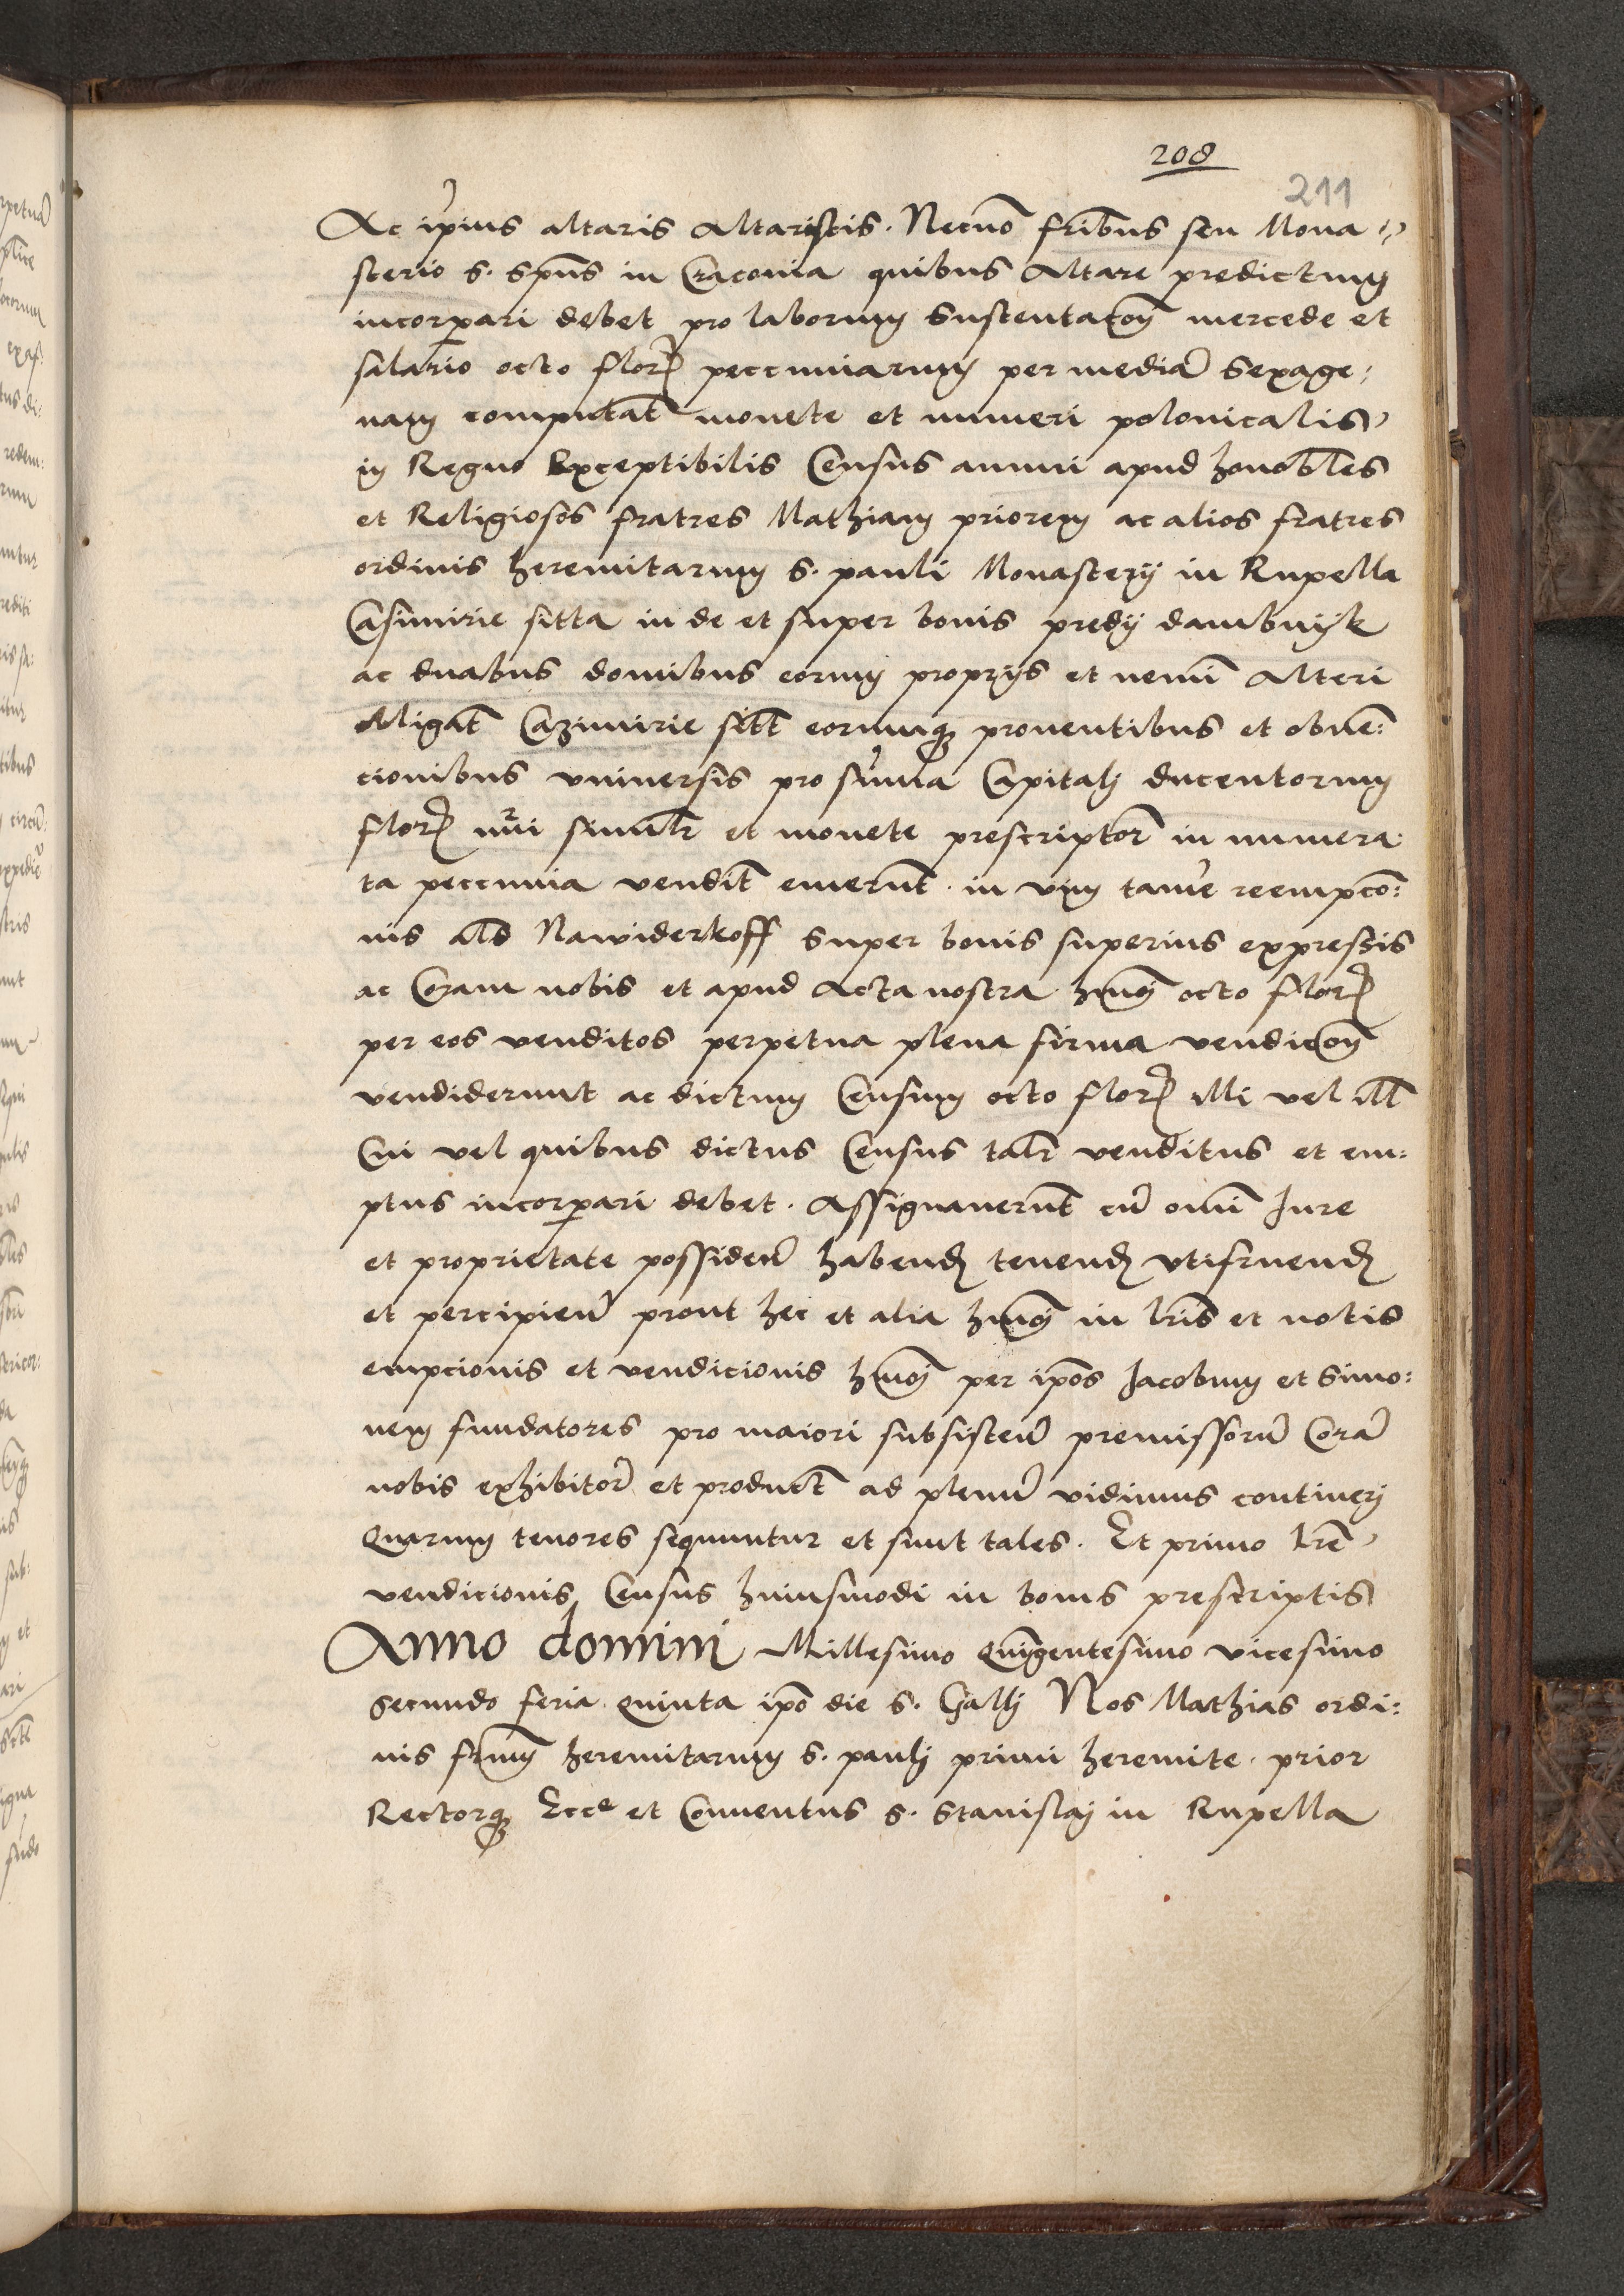 208
211
Ac ip̄ius altaris Altaristis. Necnō fr̄ibus seu Mona⸗
sterio S. Sp̄us in Cracouia quibus Altare predictum
incorꝑari debet pro laborum Sustentac̄oē mercede et
salario octo flor̄ peccuniarum per mediā Sexage:
nam computat̄ monete et numeri polonicalis
in Regno Exceptibilis Census annui apud honob̄les
et Religiosos fratres Mathiam priorem ac alios fratres
ordinis heremitarum S. pauli Monasterij in Rupella
Casimirie sitta in de et super bonis predij dambnijk
ac duabus domibus eorum proprijs et nemī Alteri
obligat̄ Cazimirie sitt̄ eorumqꝫ prouentibus et obuē:
cionibus vniuersis pro sūma Capitalj ducentorum
flor̄ nr̄i simil̄r et monete prescriptor̄ in numera
ta peccunia vendit̄ emerūt. in vim tamē reempcō:
nis al̄s Nawiderkoff Super bonis superius expressis
ac Coram nobis et apud Acta nostra hmōi octo flor̄
per eos venditos perpetua plena firma vendicōē
vendiderunt ac dictum Censum octo flor̄ illi vel ill̄
Cui vel quibus dictus Census tal̄r venditus et em:
ptus incorꝑari debet. Assignauerūt cū om̄i Jure
et proprietate possideñ habend̄ tenend̄ vtifruend̄
et percipieñ prout hec et alia hmōi in l̄ris et notis
empcionis et vendicionis hmōi per ip̄os Jacobum et Simo:
nem fundatores pro maiori subsisteñ premissorū Corā
nobis exhibitor̄ et product̄ ad plenū vidimus continerj
Quarum tenores sequuntur et sunt tales. Et primo l̄re
vendicionis Census huiusmodi in bonis prescriptis
Anno domini Millesimo Quīgentesimo vicesimo
secundo feria quinta ip̄o die S. Gallj Nos Mathias ordi:
nis fr̄um heremitarum S. paulj primi heremite prior
Rectorqꝫ Ecc̄e et Conuentus S. Stanislaj in Rupella